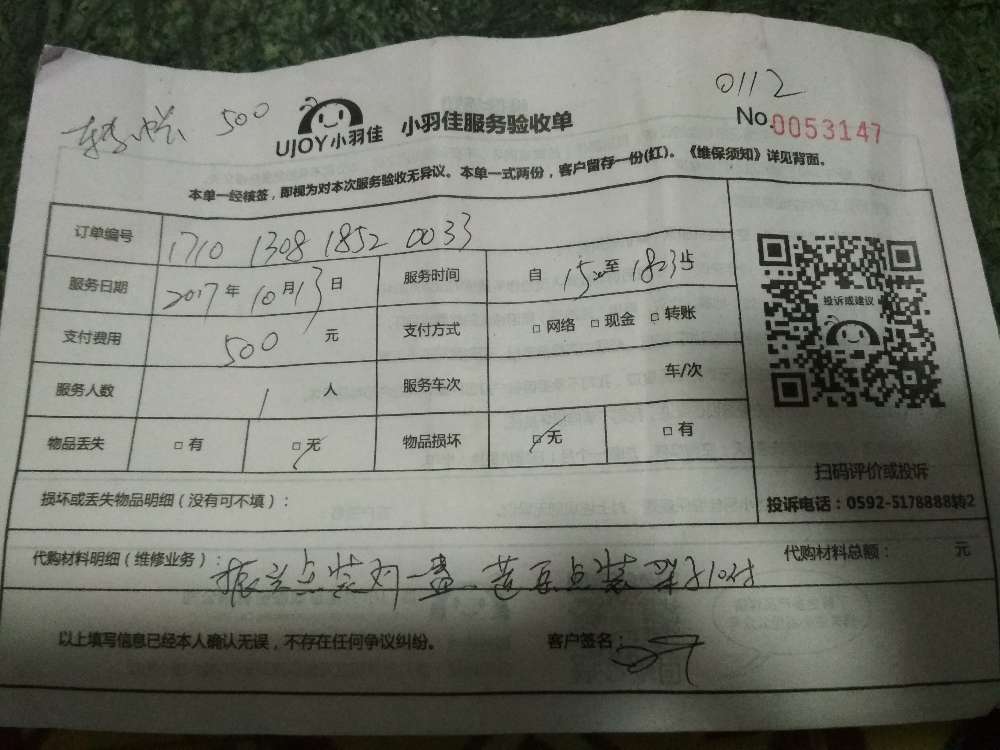 0112
500
UJOY小羽佳 小羽佳服务验收单 No.0053147
本单一经核签，即视为对本次服务验收无异议。本单一式两份，客户留存一份(红)。《维保须知》详见背面。
订单编号 1710 1308 1852 0033
服务日期 2017年10月13日 服务时间 自 15 至 1823 止
支付费用 500 元 支付方式 □网络 □现金 □转账
服务人数 1 人 服务车次 车/次
物品丢失 □有 □无 物品损坏 □无 □有
投诉或建议
扫码评价或投诉
投诉电话：0592-5178888转2
损坏或丢失物品明细（没有可不填）：
代购材料明细（维修业务）： 代购材料总额： 元
以上填写信息已经本人确认无误，不存在任何争议纠纷。 客户签名：